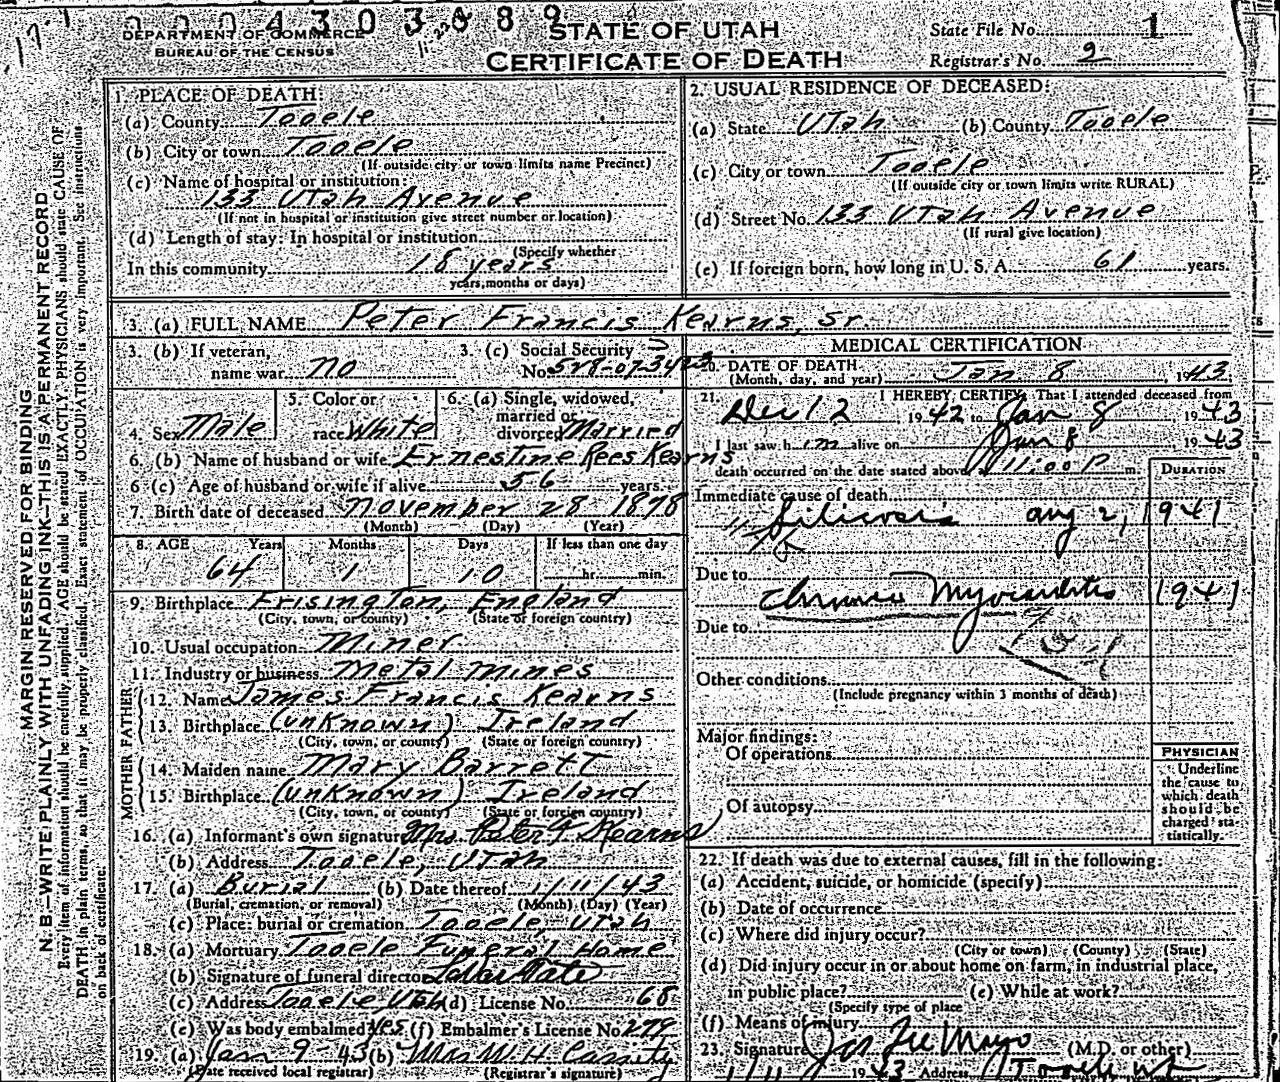 0 0 0 4 3 0 3 0 8 9
DEPARTMENT OF COMMERCE
BUREAU OF THE CENSUS
STATE OF UTAH
CERTIFICATE OF DEATH
State File No. 1
Registrar's No. 2
MARGIN RESERVED FOR BINDING
N. B.—WRITE PLAINLY WITH UNFADING INK—THIS IS A PERMANENT RECORD
Every item of information should be carefully supplied. AGE should be stated EXACTLY. PHYSICIANS should state CAUSE OF
DEATH in plain terms, so that it may be properly classified. Exact statement of OCCUPATION is very important. See instructions
on back of certificate.
1. PLACE OF DEATH:
(a) County Tooele
(b) City or town Tooele
(If outside city or town limits name Precinct)
(c) Name of hospital or institution:
133 Utah Avenue
(If not in hospital or institution give street number or location)
(d) Length of stay: In hospital or institution
(Specify whether
In this community 18 years
years, months or days)
2. USUAL RESIDENCE OF DECEASED:
(a) State Utah (b) County Tooele
(c) City or town Tooele
(If outside city or town limits write RURAL)
(d) Street No. 133 Utah Avenue
(If rural give location)
(e) If foreign born, how long in U. S. A. 61 years.
3. (a) FULL NAME Peter Francis Kearns, Sr.
3. (b) If veteran, name war no
3. (c) Social Security No. 528-07-3423
4. Sex Male
5. Color or race White
6. (a) Single, widowed, married or divorced Married
6. (b) Name of husband or wife Ernestine Rees Kearns
6 (c) Age of husband or wife if alive 56 years.
7. Birth date of deceased November 28 1878
(Month) (Day) (Year)
8. AGE Years Months Days If less than one day
64 1 10 hr. min.
9. Birthplace Frisington, England
(City, town, or county) (State or foreign country)
10. Usual occupation Miner
11. Industry or business Metal Mines
FATHER
12. Name James Francis Kearns
13. Birthplace (unknown) Ireland
(City, town, or county) (State or foreign country)
MOTHER
14. Maiden name Mary Barrett
15. Birthplace (unknown) Ireland
(City, town, or county) (State or foreign country)
16. (a) Informant's own signature Mrs. Peter F Kearns
(b) Address Tooele, Utah
17. (a) Burial (b) Date thereof 1/11/43
(Burial, cremation, or removal) (Month) (Day) (Year)
(c) Place: burial or cremation Tooele, Utah
18. (a) Mortuary Tooele Funeral Home
(b) Signature of funeral director Tate
(c) Address Tooele Utah (d) License No. 68
(e) Was body embalmed? Yes (f) Embalmer's License No. 279
19. (a) Jan 9-43 (b) Mrs W.H. Cassity
(Date received local registrar) (Registrar's signature)
MEDICAL CERTIFICATION
20. DATE OF DEATH
(Month, day, and year) Jan. 8, 1943
21. I HEREBY CERTIFY, That I attended deceased from
Dec 12 1942 to Jan 8 1943
I last saw him alive on Jan 8 1943
death occurred on the date stated above 11:00 P. m.
DURATION
Immediate cause of death
Silicosis Aug 2, 1941
Due to
Chronic Myocarditis 1941
Due to
Other conditions
(Include pregnancy within 3 months of death)
Major findings:
Of operations
Of autopsy
PHYSICIAN
Underline
the cause to
which death
should be
charged sta-
tistically.
22. If death was due to external causes, fill in the following:
(a) Accident, suicide, or homicide (specify)
(b) Date of occurrence
(c) Where did injury occur?
(City or town) (County) (State)
(d) Did injury occur in or about home on farm, in industrial place,
in public place? (e) While at work?
(Specify type of place
(f) Means of injury
23. Signature (M.D. or other)
1/11 1943 Address Tooele Ut